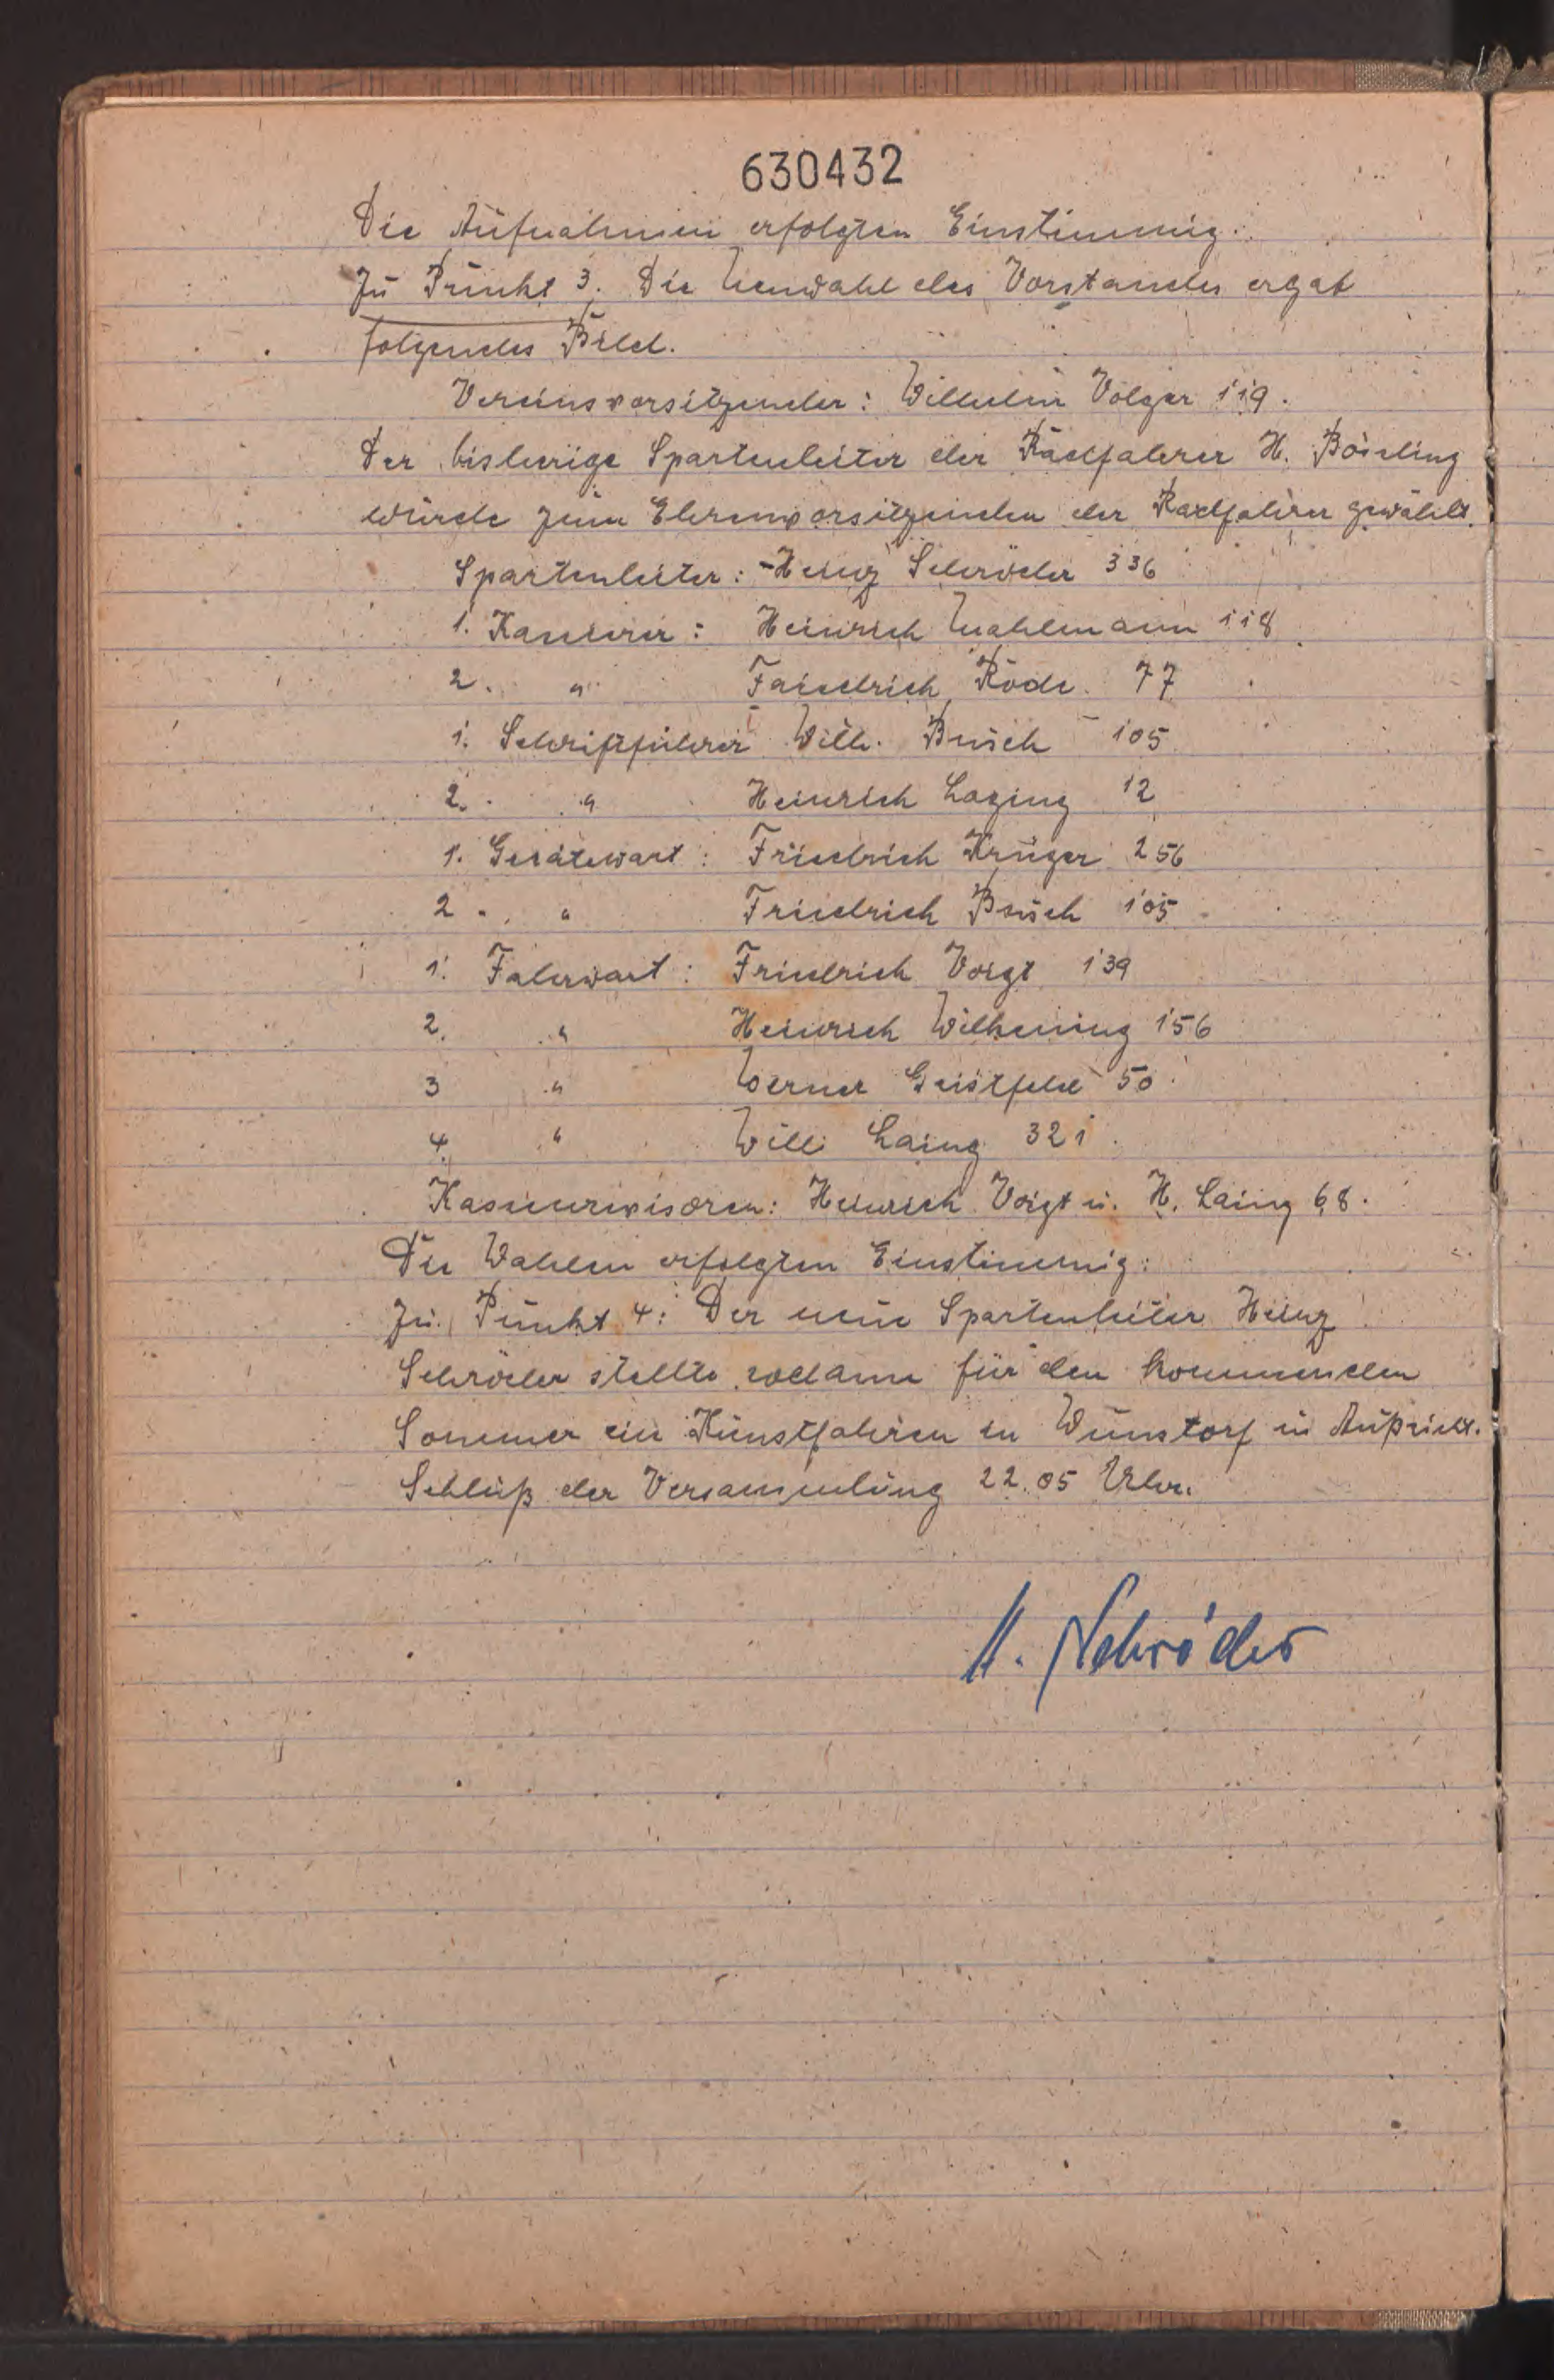 630432
Die Aufnahmen erfolgten Einstimmig.
Zu Punkt 3. Die Neuwahl des Vorstandes ergab
folgendes Bild.
Vereinsvorsitzender: Wilhelm Völger 119.
Der bisherige Spartenleiter der Radfahrer H. Bösling
wurde zum Ehrenvorsitzenden der Radfahrer gewählt.
Spartenleiter: Heinz Schröder 336
1. Kassierer: Heinrich Mahlmann 118
2. " Faiedrich Rode. 77
1. Schriftführer Wilh. Busch 105
2. " Heinrich 12
1. Gerätewart: Friedrich Krüger 256
2. " Friedrich Busch 105
1. Fahrwart: Friedrich Voigt 139
2. " Heinrich Wilkening 156
3 " Werner Geistfeld 50
4. " Willi Laing 321.
Kassenrevisoren: Heinrich Voigt u. H. Laing 68.
Die Wahlen erfolgten Einstimmig.
Zu Punkt 4: Der neue Spartenleiter Heinz
Schröder stellte sodann für den kommenden
Sommer ein Kunstfahren in Wunstorf in Aussicht.
Schluß der Versammlung 22.05 Uhr.
H. Schröder